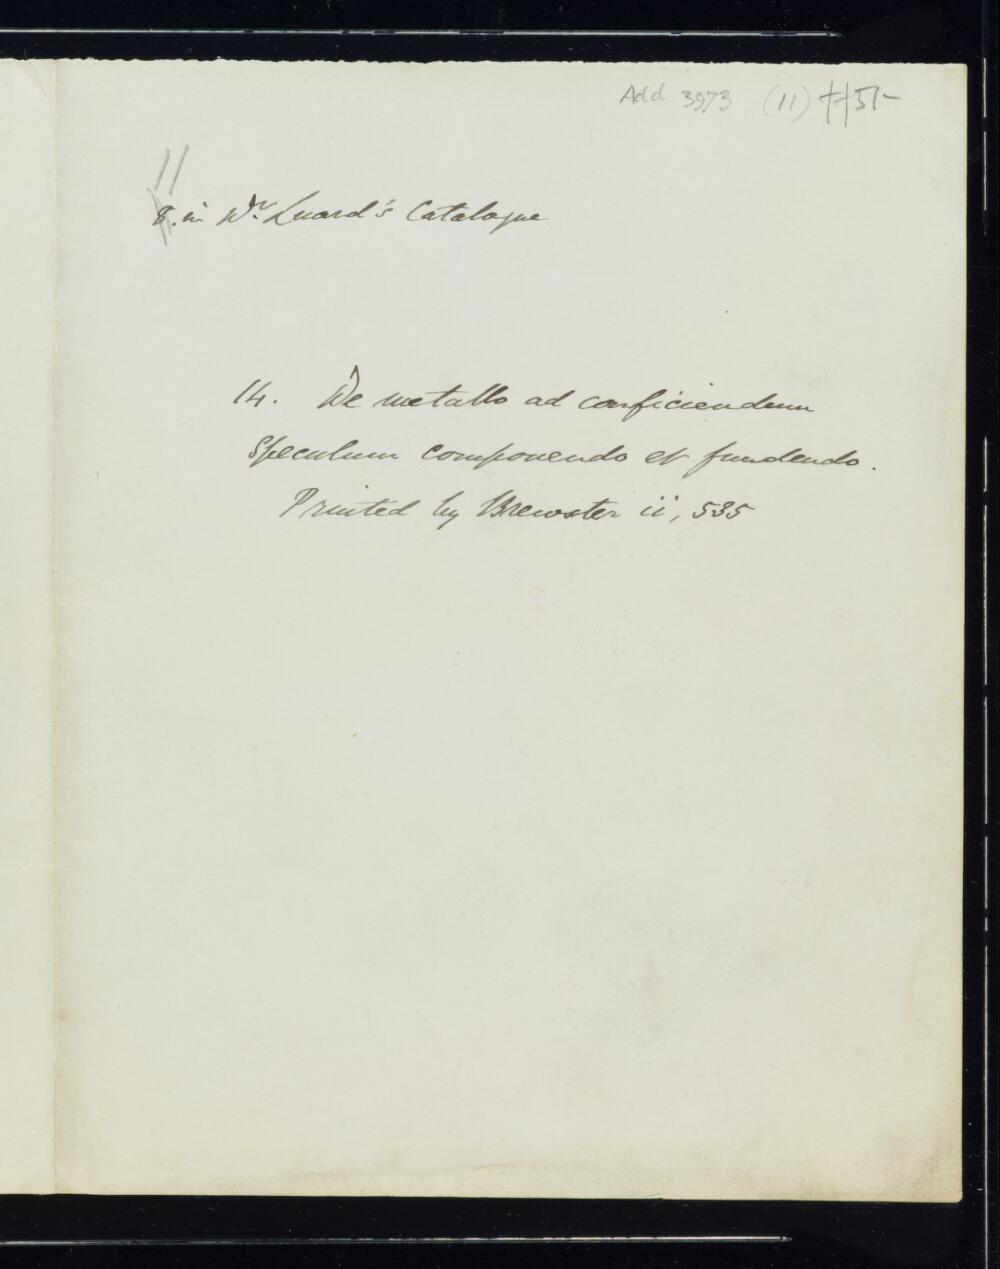 Add 3973 (11) ff51-
11
8. in Dr. Luard's Catalogue
14. De metallo ad conficiendum
Speculum componendo et fundendo.
Printed by Brewster ii, 535